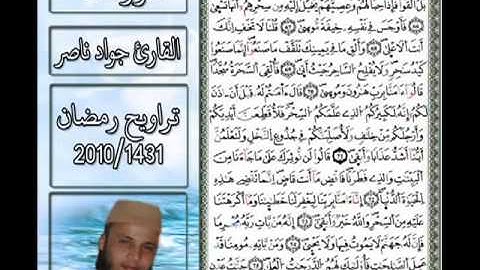 القارئ جواد ناصر
تراويح رمضان
2010/1431
بل القوا فإذا حبالهم وعصيهم يخيل إليه من سحرهم أنها تسعى
فأوجس في نفسه خيفة موسى قلنا لا تخف إنك
أنت الأعلى وألق ما في يمينك تلقف ما صنعوا إنما صنعوا
كيد سحر ولا يفلح الساحر حيث أتى فألقي السحرة سجدا
قالوا ءامنا برب هرون وموسى قال ءامنتم له قبل أن ءاذن
لكم إنه لكبيركم الذي علمكم السحر فلأقطعن أيديكم
وأرجلكم من خلف ولأصلبنكم في جذوع النخل ولتعلمن
أينا أشد عذابا وأبقى قالوا لن نوثرك على ما جاءنا من
البينت والذي فطرنا فاقض ما أنت قاض إنما تقضي هذه
الحيوة الدنيا إنا ءامنا بربنا ليغفر لنا خطينا وما أكرهتنا
عليه من السحر والله خير وأبقى إنه من يات ربه مجرما
فإن له جهنم لا يموت فيها ولا يحيى ومن ياته مومنا قد
عمل الصلحت فأولئك لهم الدرجت العلى جنت عدن